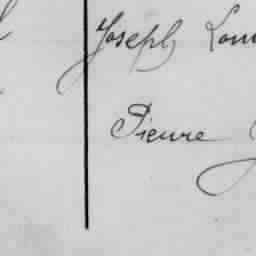 Joseph Lou
Pierre